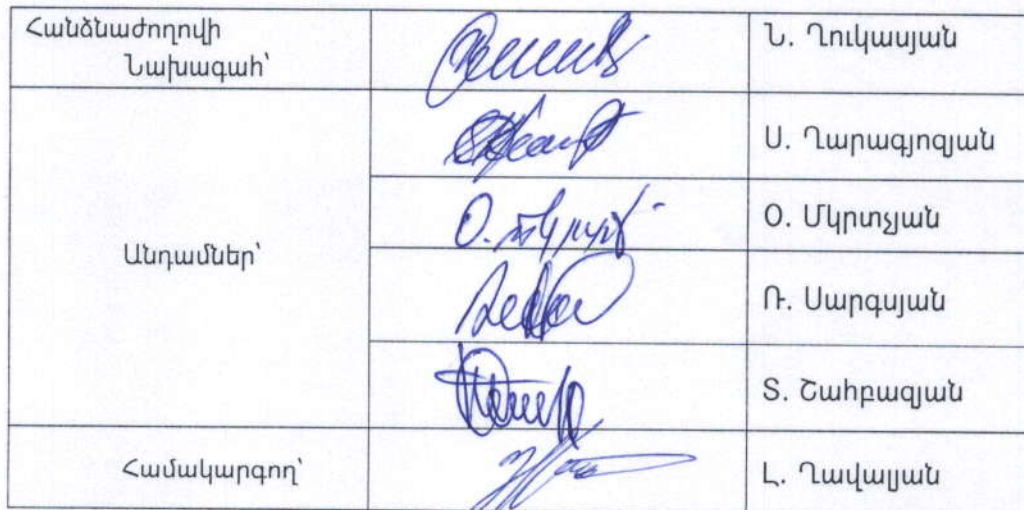 Հանձնաժողովի
Նախագահ՝
Ն. Ղուկասյան
Ս. Ղարագյոզյան
Անդամներ՝
Օ. Մկրտչյան
Ռ. Սարգսյան
Տ. Շահբազյան
Համակարգող՝
Լ. Ղավալյան